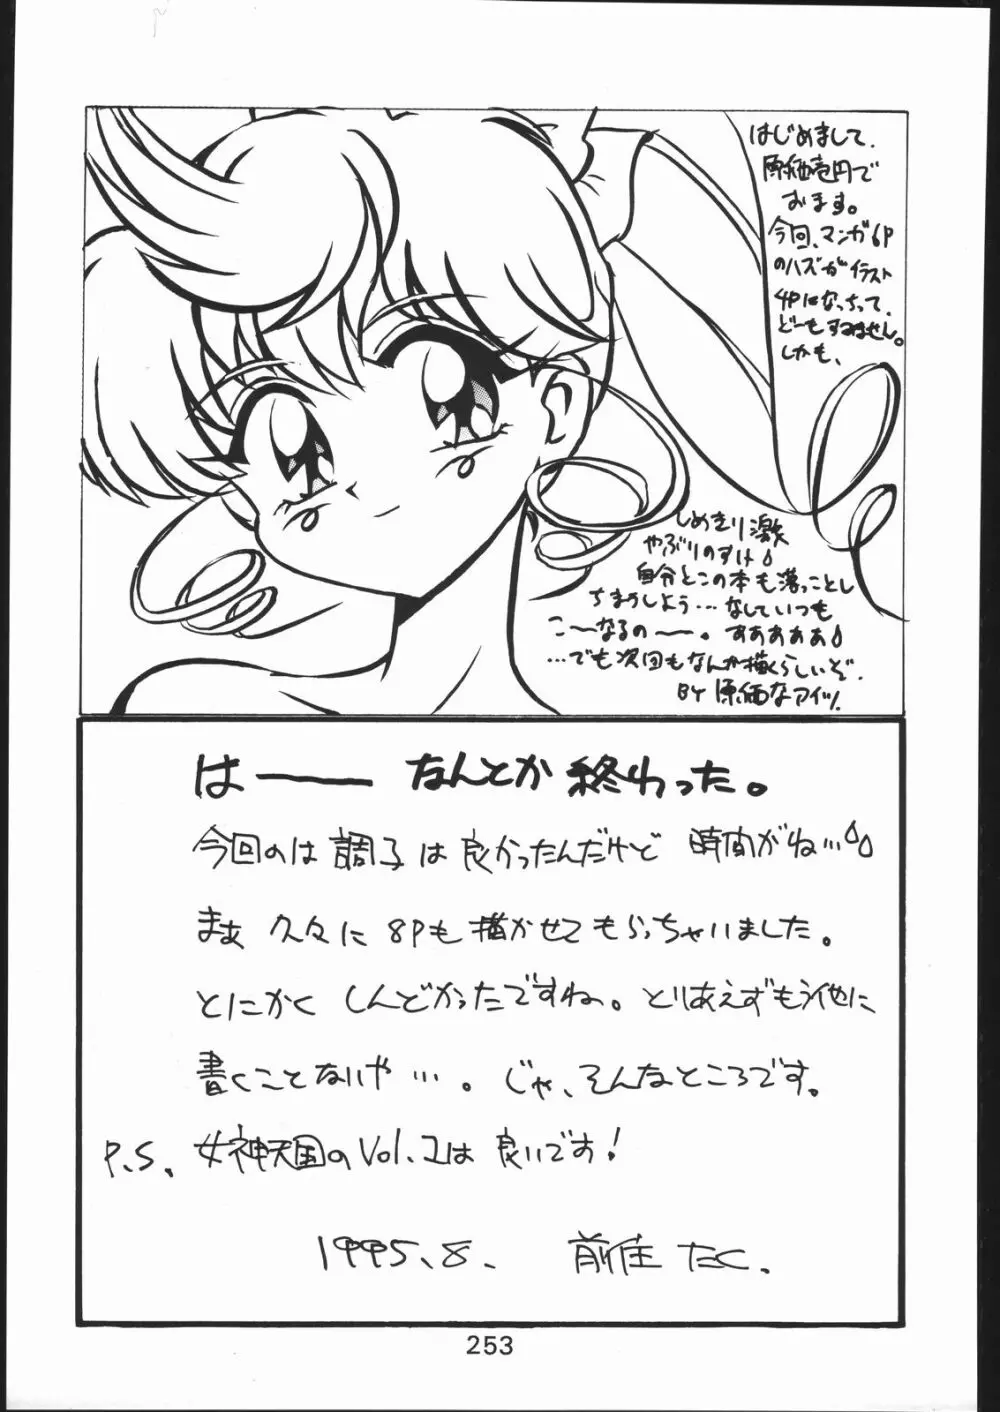 はじめまして、
原価壱円で
おます。
今回、マンガ6P
のハズがイラスト
4Pになっちって、
どーもすみません。
しかも、
しめきり激
やぶりのすけ
自分とこの本も落っことし
ちまうしよう…なしていつも
こ〜なるの〜。すあああああ
…でも次回もなんか描くらしいぞ。
BY 原価なアイツ
はーー なんとか 終わった。
今回のは 調子は 良かったんだけど 時間がね…
まぁ 久々に 8Pも 描かせて もらっちゃいました。
とにかく しんどかったですね。とりあえずもう他に
書くことないや…。じゃ、そんなところです。
P.S. 女神天国のVol.2は 良いです!
1995.8. 前住 たく.
253